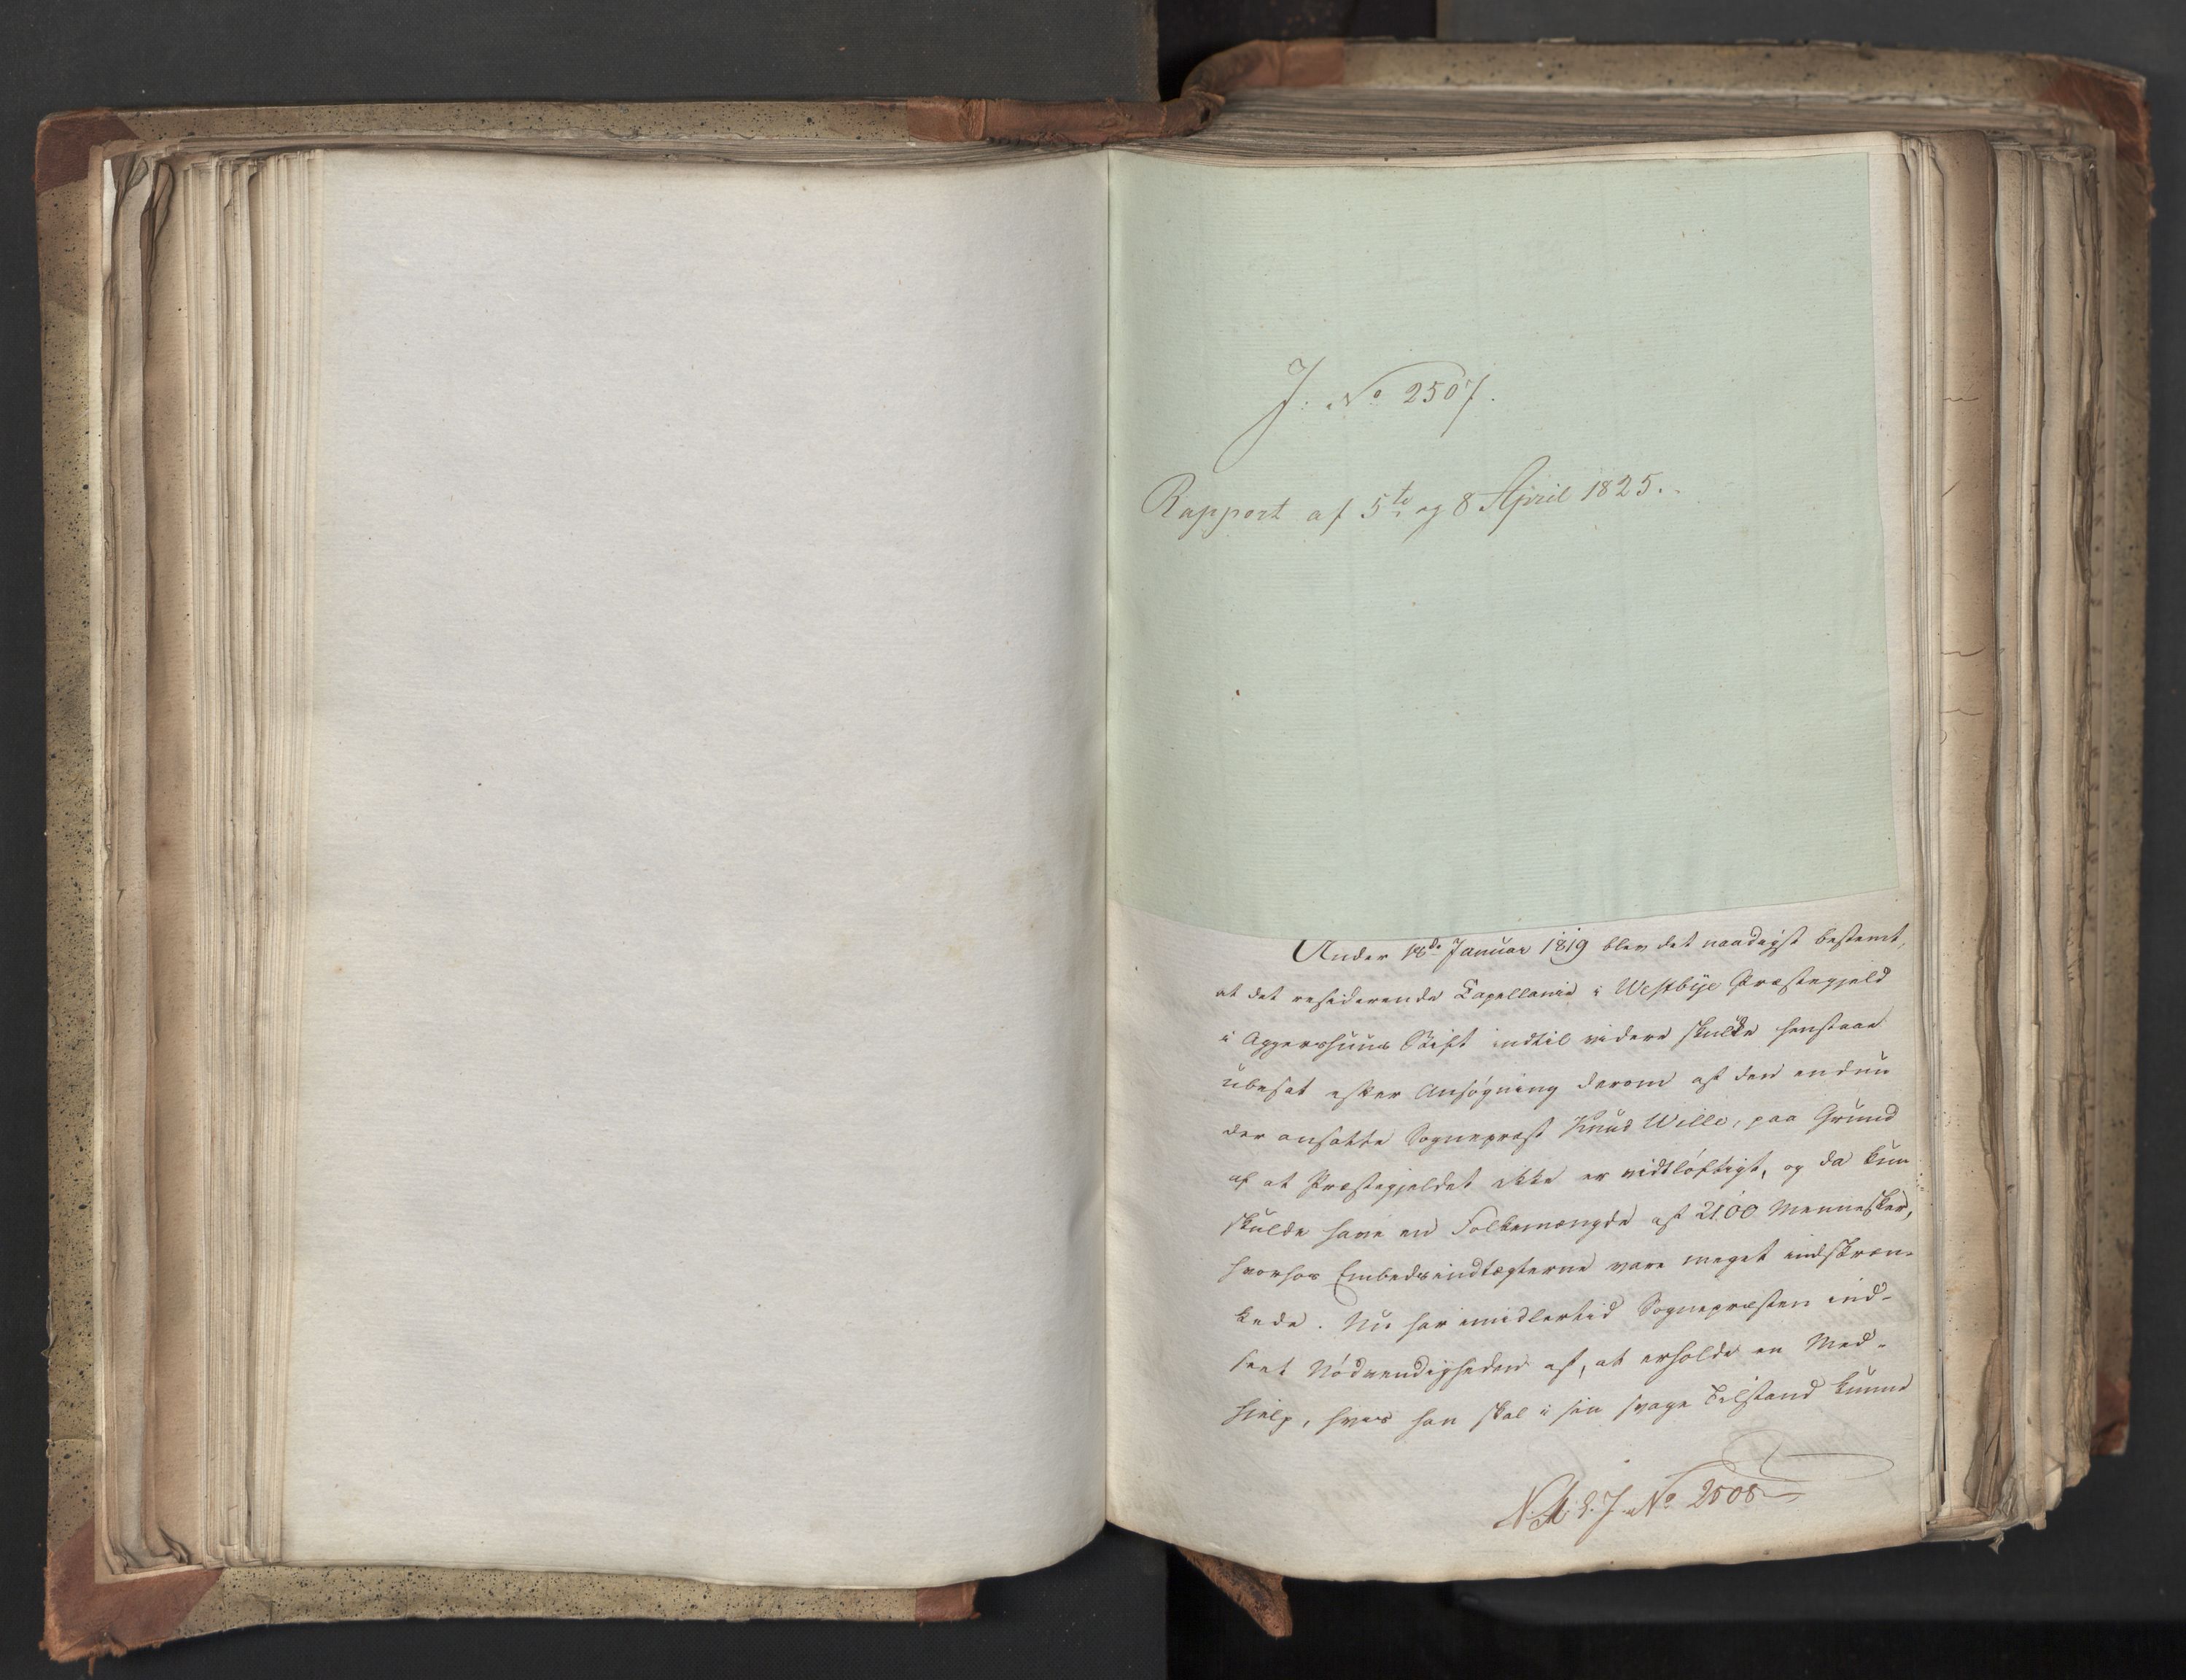 J: No 2507.
Rapport af 5te og 8 April 1825.
Under 18de Januar 1819 blev det naadigst bestemt,
at det residerende Capellanie i Westbÿe Præstegjeld
i Aggershuus Stift indtil videre skulde henstaae
ubesat efter Ansøgning derom af den endnu
der ansatte Sognepræst Knud Wille, paa Grund
af at Præstegjeldet ikke er vidtløftigt, og da kun
skulde have en Folkemængde af 2100 Mennesker,
hvorhos Embedsindtægterne vare meget indskræn-
kede. Nu har imidlertid Sognepræsten ind-
seet Nødvendigheden af, at erholde en Med-
hjelp, hvis han skal i sin svage Tilstand kunne
J. No 2508